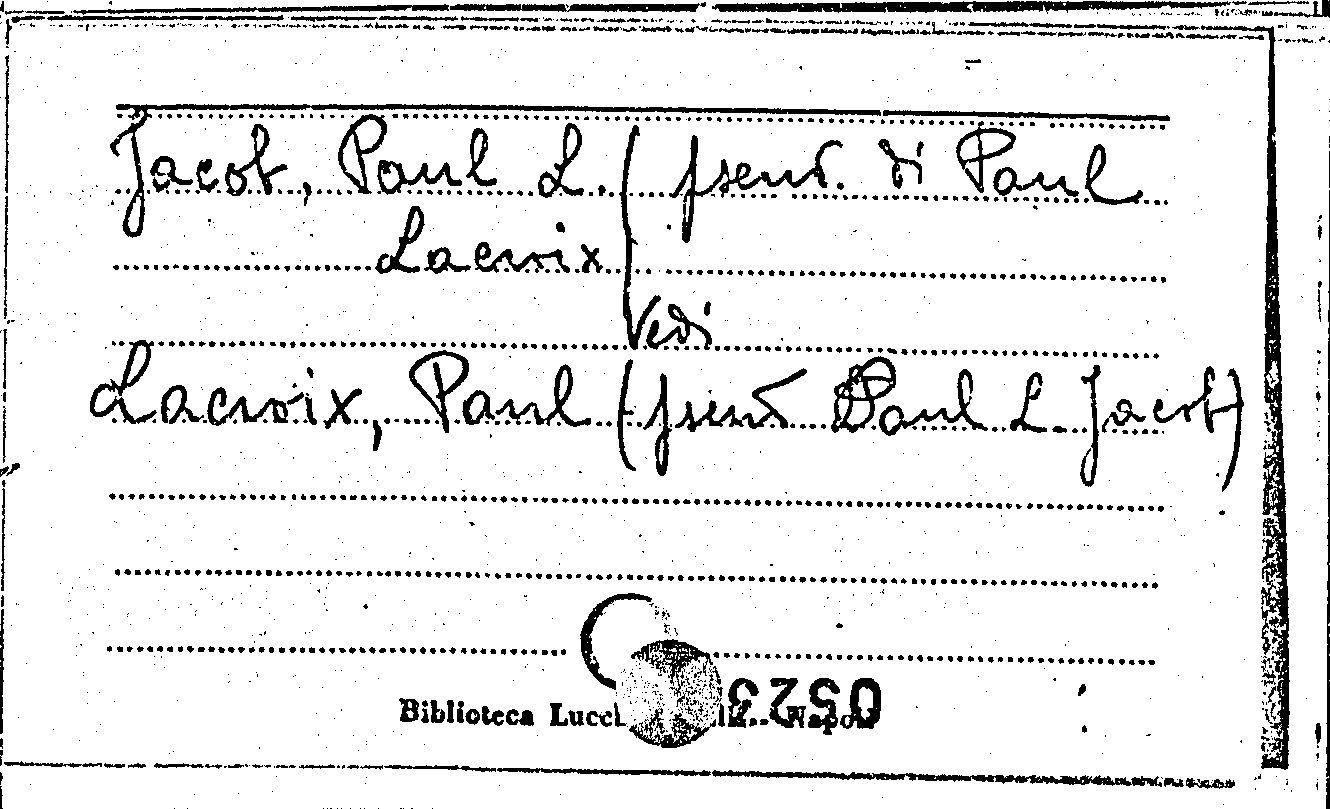 Jacob, Paul L. (pseud. di Paul
Lacroix)
Vedi
Lacroix, Paul (pseud Paul L. Jacob)
Biblioteca Napoli